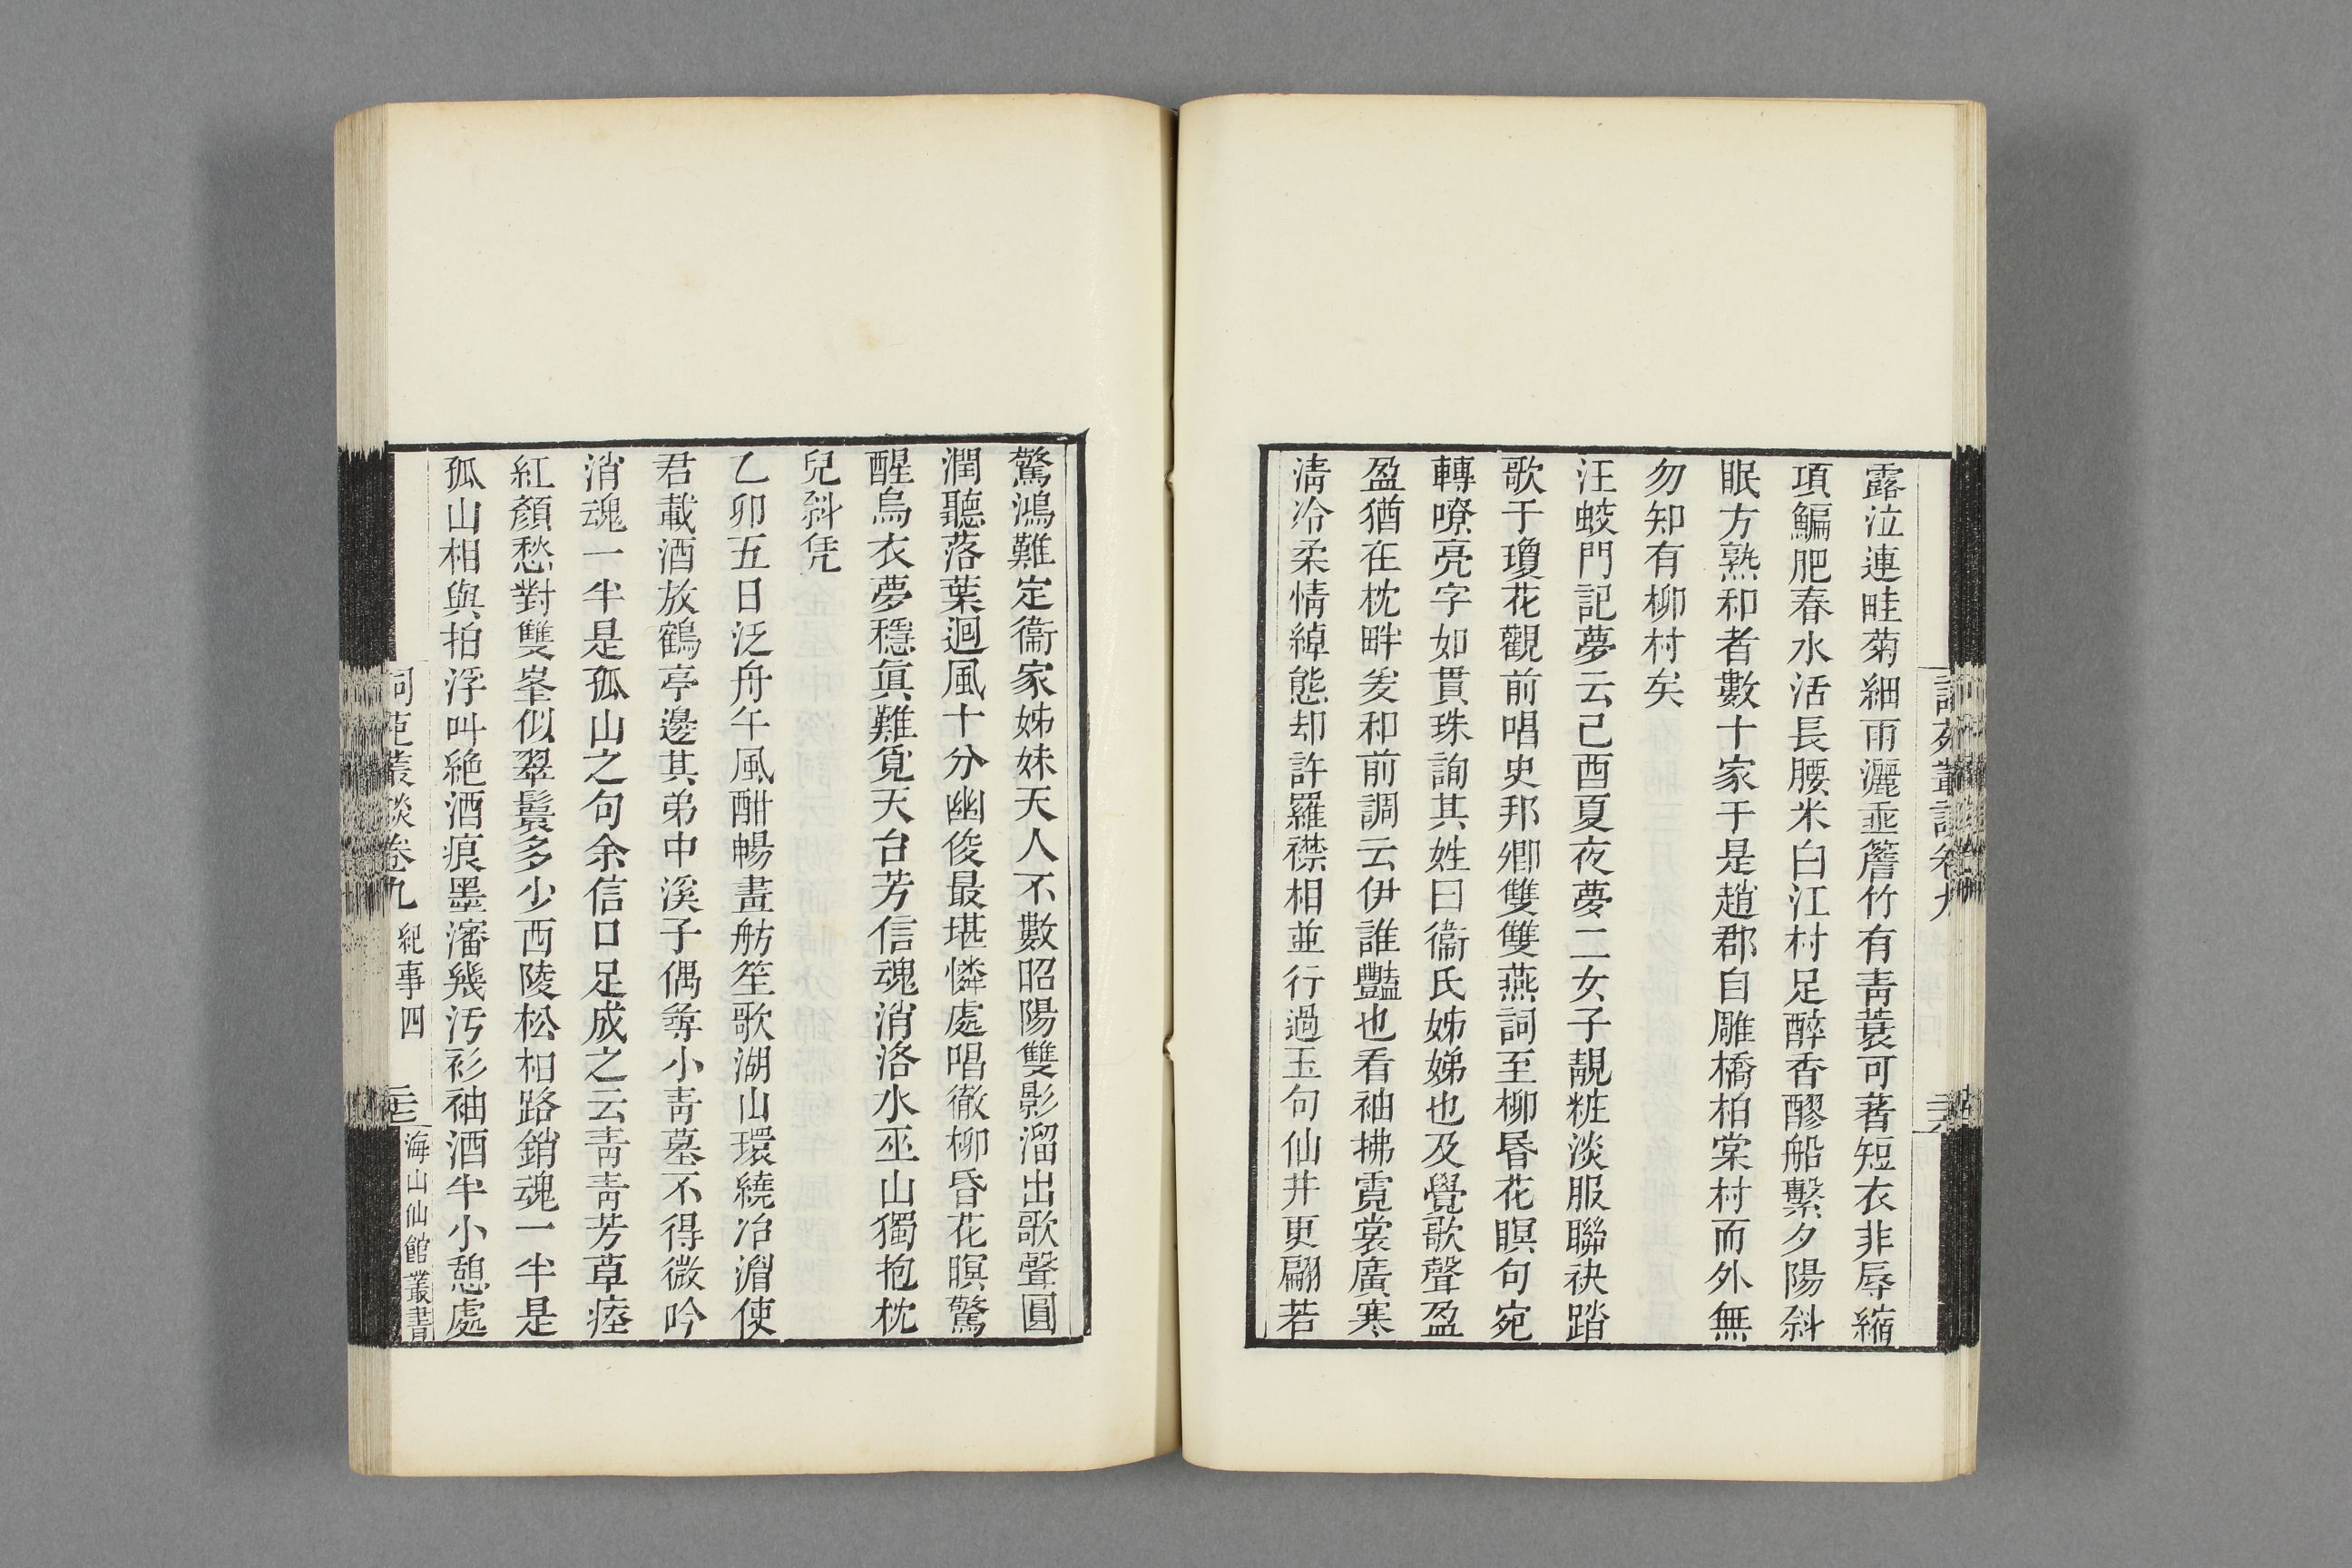 露泣連畦菊細雨灑垂簷竹有靑蓑可著短衣非辱縮
項鯿肥春水活長腰米白江村足醉香醪船繫夕陽斜
眠方熟和者數十家于是趙郡自雕橋柏棠村而外無
勿知有柳村矣
汪蛟門記夢云己酉夏夜夢二女子靚粧淡服聯袂踏
歌于瓊花觀前唱史邦卿雙雙燕詞至柳昬花暝句宛
轉嘹亮字如貫珠詢其姓曰衞氏姊娣也及覺歌聲盈
盈猶在枕畔爰和前調云伊誰豔也看袖拂霓裳廣寒
淸冷柔情綽態却許羅襟相並行過玉句仙井更翩若
驚鴻難定衞家姊妹天人不數昭陽雙影溜出歌聲圓
潤聽落葉迴風十分幽俊最堪憐處唱徹柳昏花暝驚
醒烏衣夢穩眞難覓天台芳信魂消洛水巫山獨抱枕
兒斜凭
乙卯五日泛舟午風酣暢畫舫笙歌湖山環繞冶湄使
君載酒放鶴亭邊其弟中溪子偶尋小靑墓不得微吟
消魂一半是孤山之句余信口足成之云靑靑芳草瘞
紅顏愁對雙峯似翠鬟多少西陵松柏路銷魂一半是
孤山相與拍浮叫絶酒痕墨瀋幾汚衫袖酒半小憩處
詞苑叢談卷九 紀事四 海山仙館叢書